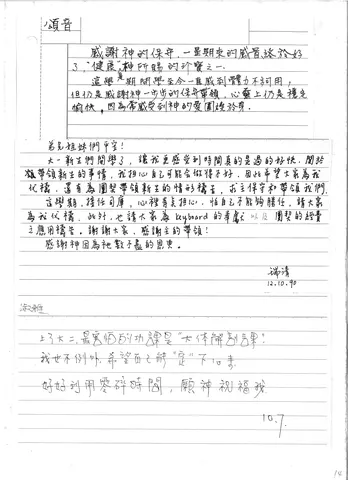 頌音
感謝神的保守,一星期來的感冒終於好
了,"健康"是神所賜的珍寶之一.
這學期開學至今一直感到體力不可用,
但仍是感謝神一步步的保守帶領,心靈上仍是穩定
愉快,因為常感受到神的愛圍繞於旁.
弟兄姐妹們平安!
大一新生們開學了,讓我更感受到時間真的是過的好快.關於
帶領新生的事情,我擔心自己可能會做得不好,因此希望大家為我
代禱,還有為團契帶領新生的情形禱告,求主保守和帶領我們.
這學期,擔任司庫,心裡有點擔心,怕自己不能夠勝任,請大家
為我代禱.此外,也請大家為 keyboard 的奉獻以及團契的經費
之應用禱告.謝謝大家,感謝主的帶領!
感謝神因為祂數不盡的恩典.
瑞清
12.10.90
上了大二,最害怕的功課是"大体解剖課"
我也不例外.希望自己能"定"下心來
好好利用零碎時間,願神祝福我
10.7.
14